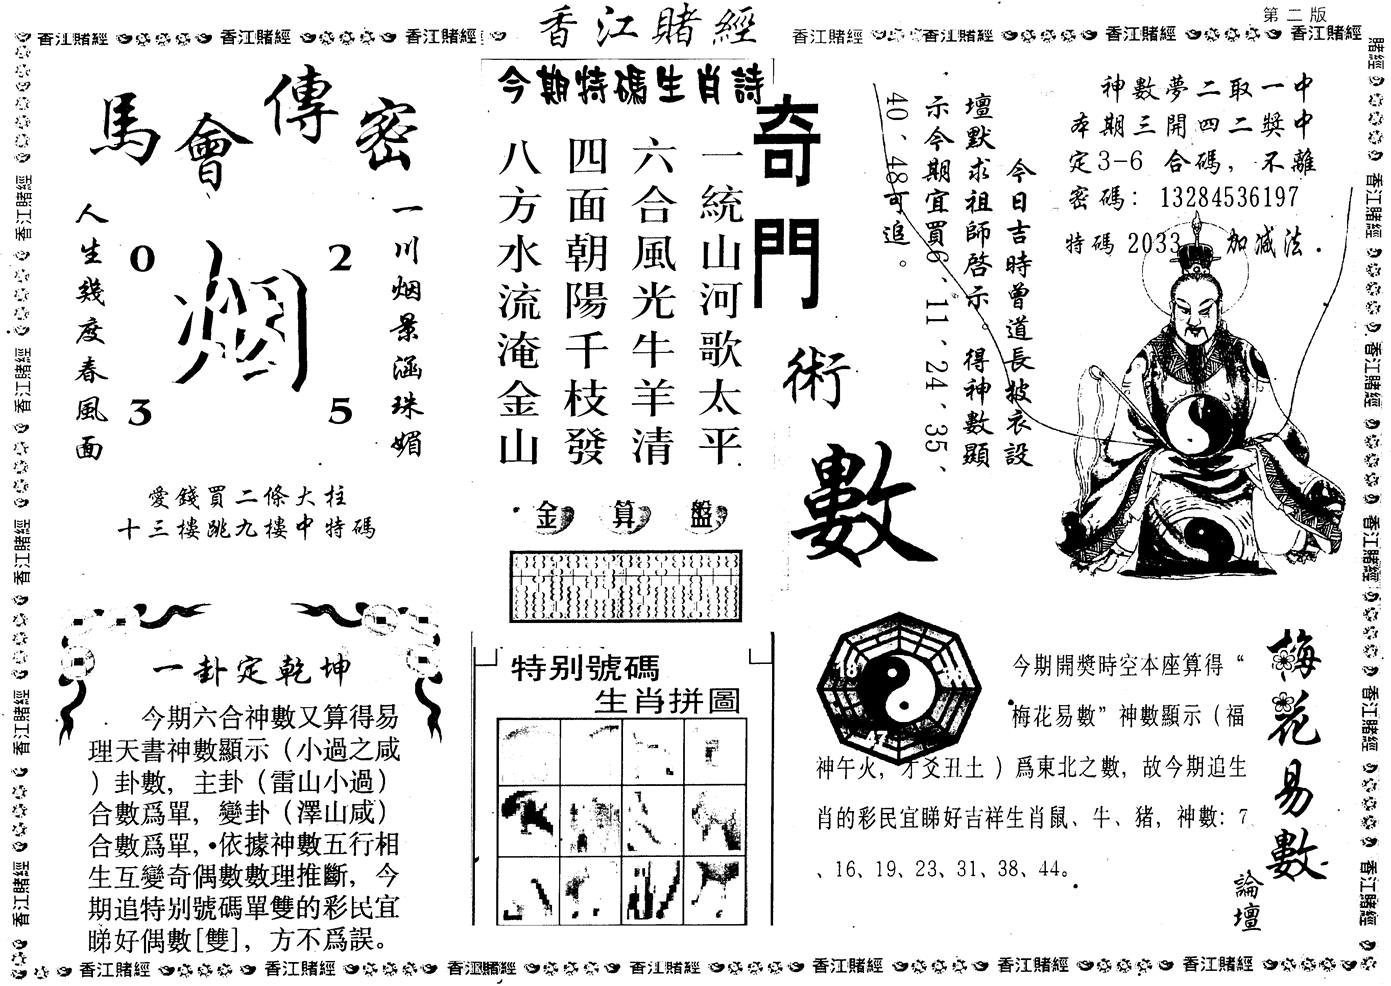 第二版
香江賭經
馬會傳密
一川烟景涵珠媚
人生幾度春風面
0 2
烟
3 5
愛錢買二條大柱
十三樓跳九樓中特碼
今期特碼生肖詩
一統山河歌太平
六合風光牛羊清
四面朝陽千枝發
八方水流淹金山
金算盤
奇門術數
神數夢二取一中
本期三開四二獎中
定3-6 合碼，不離
密碼：13284536197
特碼 2033 加减法．
今日吉時曾道長披衣設
壇默求祖師啓示。得神數顯
示今期宜買6、11、24、35、
40、48可追。
一卦定乾坤
今期六合神數又算得易
理天書神數顯示（小過之咸
）卦數，主卦（雷山小過）
合數爲單，變卦（澤山咸）
合數爲單，依據神數五行相
生互變奇偶數數理推斷，今
期追特别號碼單雙的彩民宜
睇好偶數[雙]，方不爲誤。
特别號碼
生肖拼圖
梅花易數
論壇
今期開獎時空本座算得“
梅花易數”神數顯示（福
神午火，才爻丑土）爲東北之數，故今期追生
肖的彩民宜睇好吉祥生肖鼠、牛、猪，神數：7
、16、19、23、31、38、44。